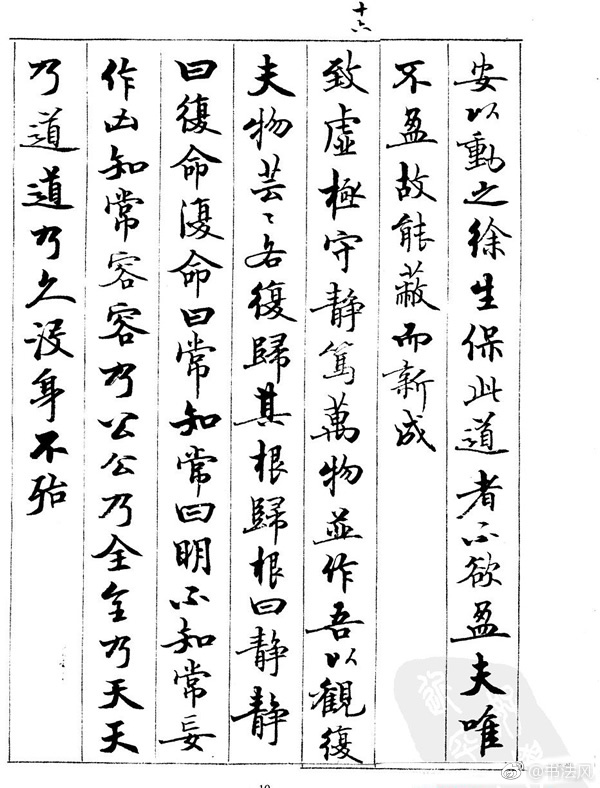 十六
安以動之徐生保此道者不欲盈夫唯
不盈故能蔽而新成
致虛極守静篤萬物並作吾以觀復
夫物芸〻各復歸其根歸根曰静静
曰復命復命曰常知常曰明不知常妄
作凶知常容容乃公公乃全全乃天天
乃道道乃久没身不殆
10
@书法风